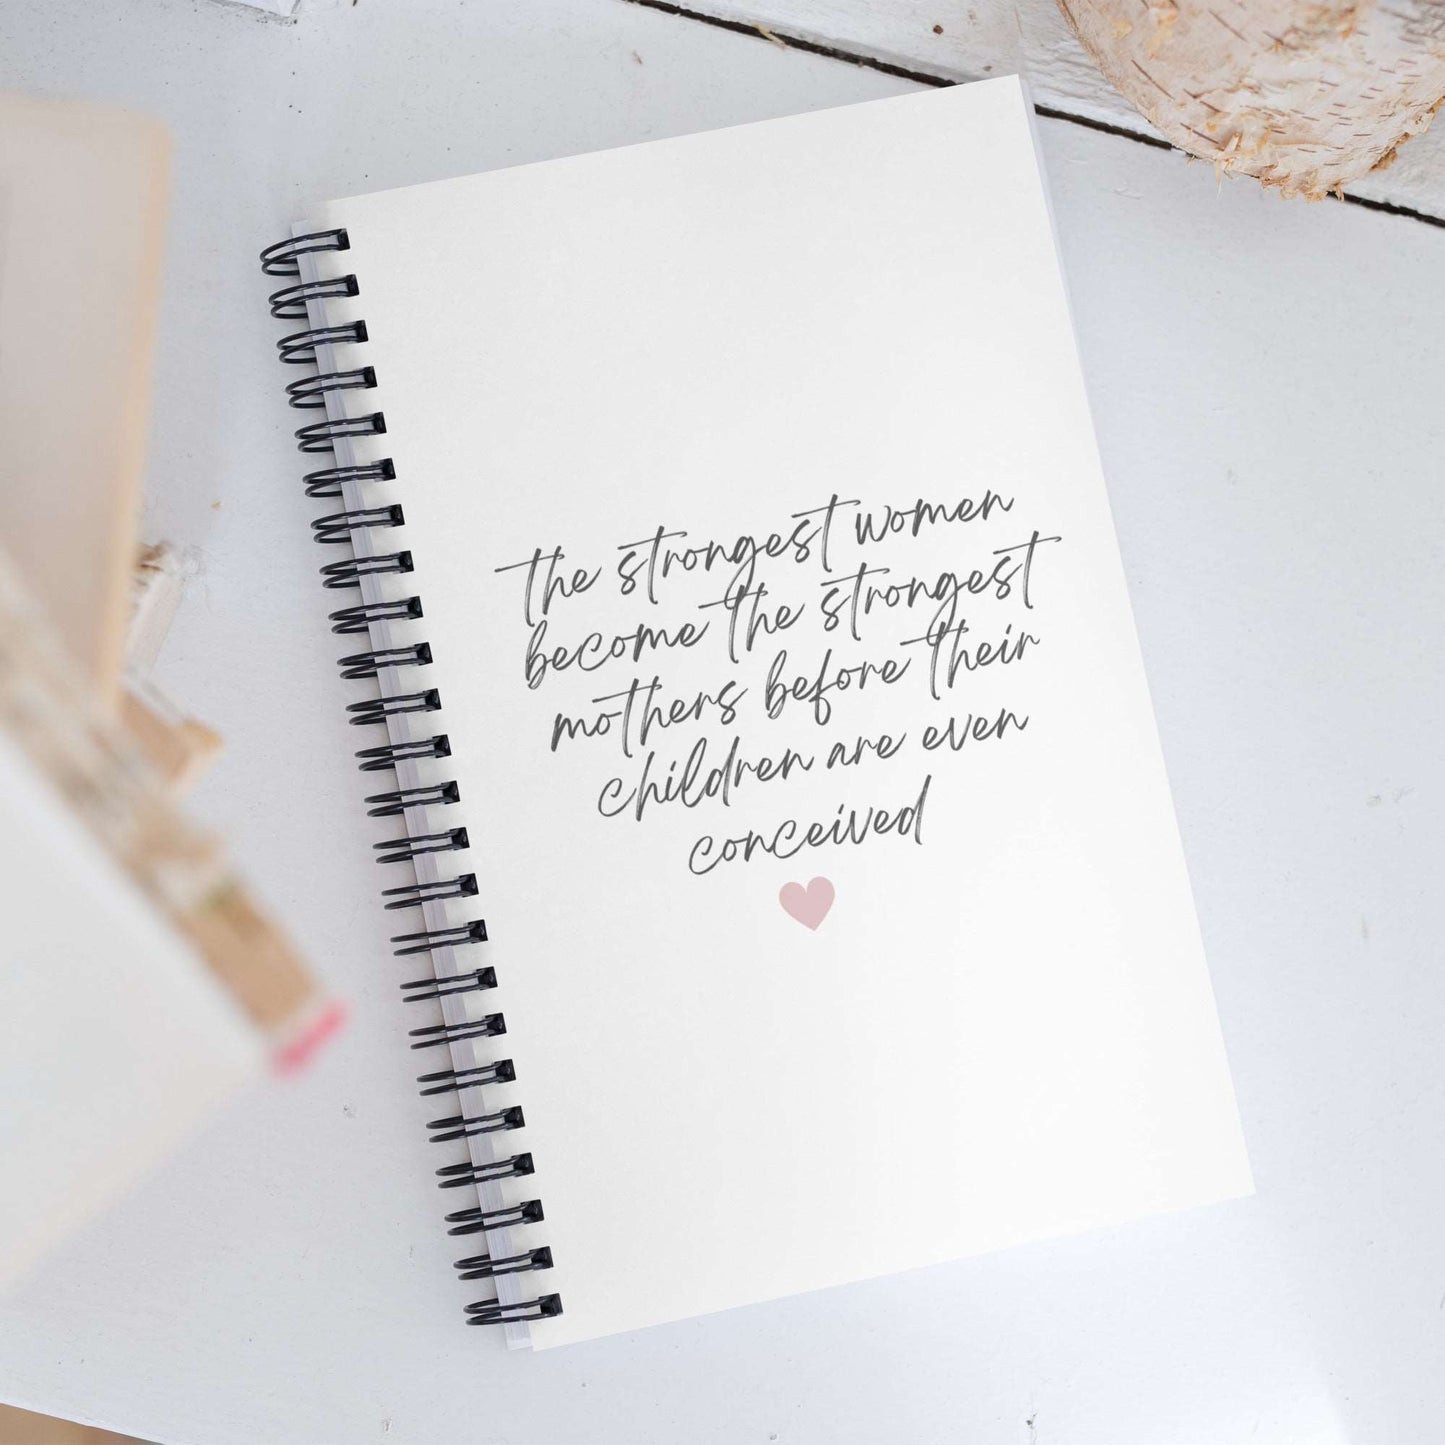 the strongest women
become the strongest
mothers before their
children are even
conceived